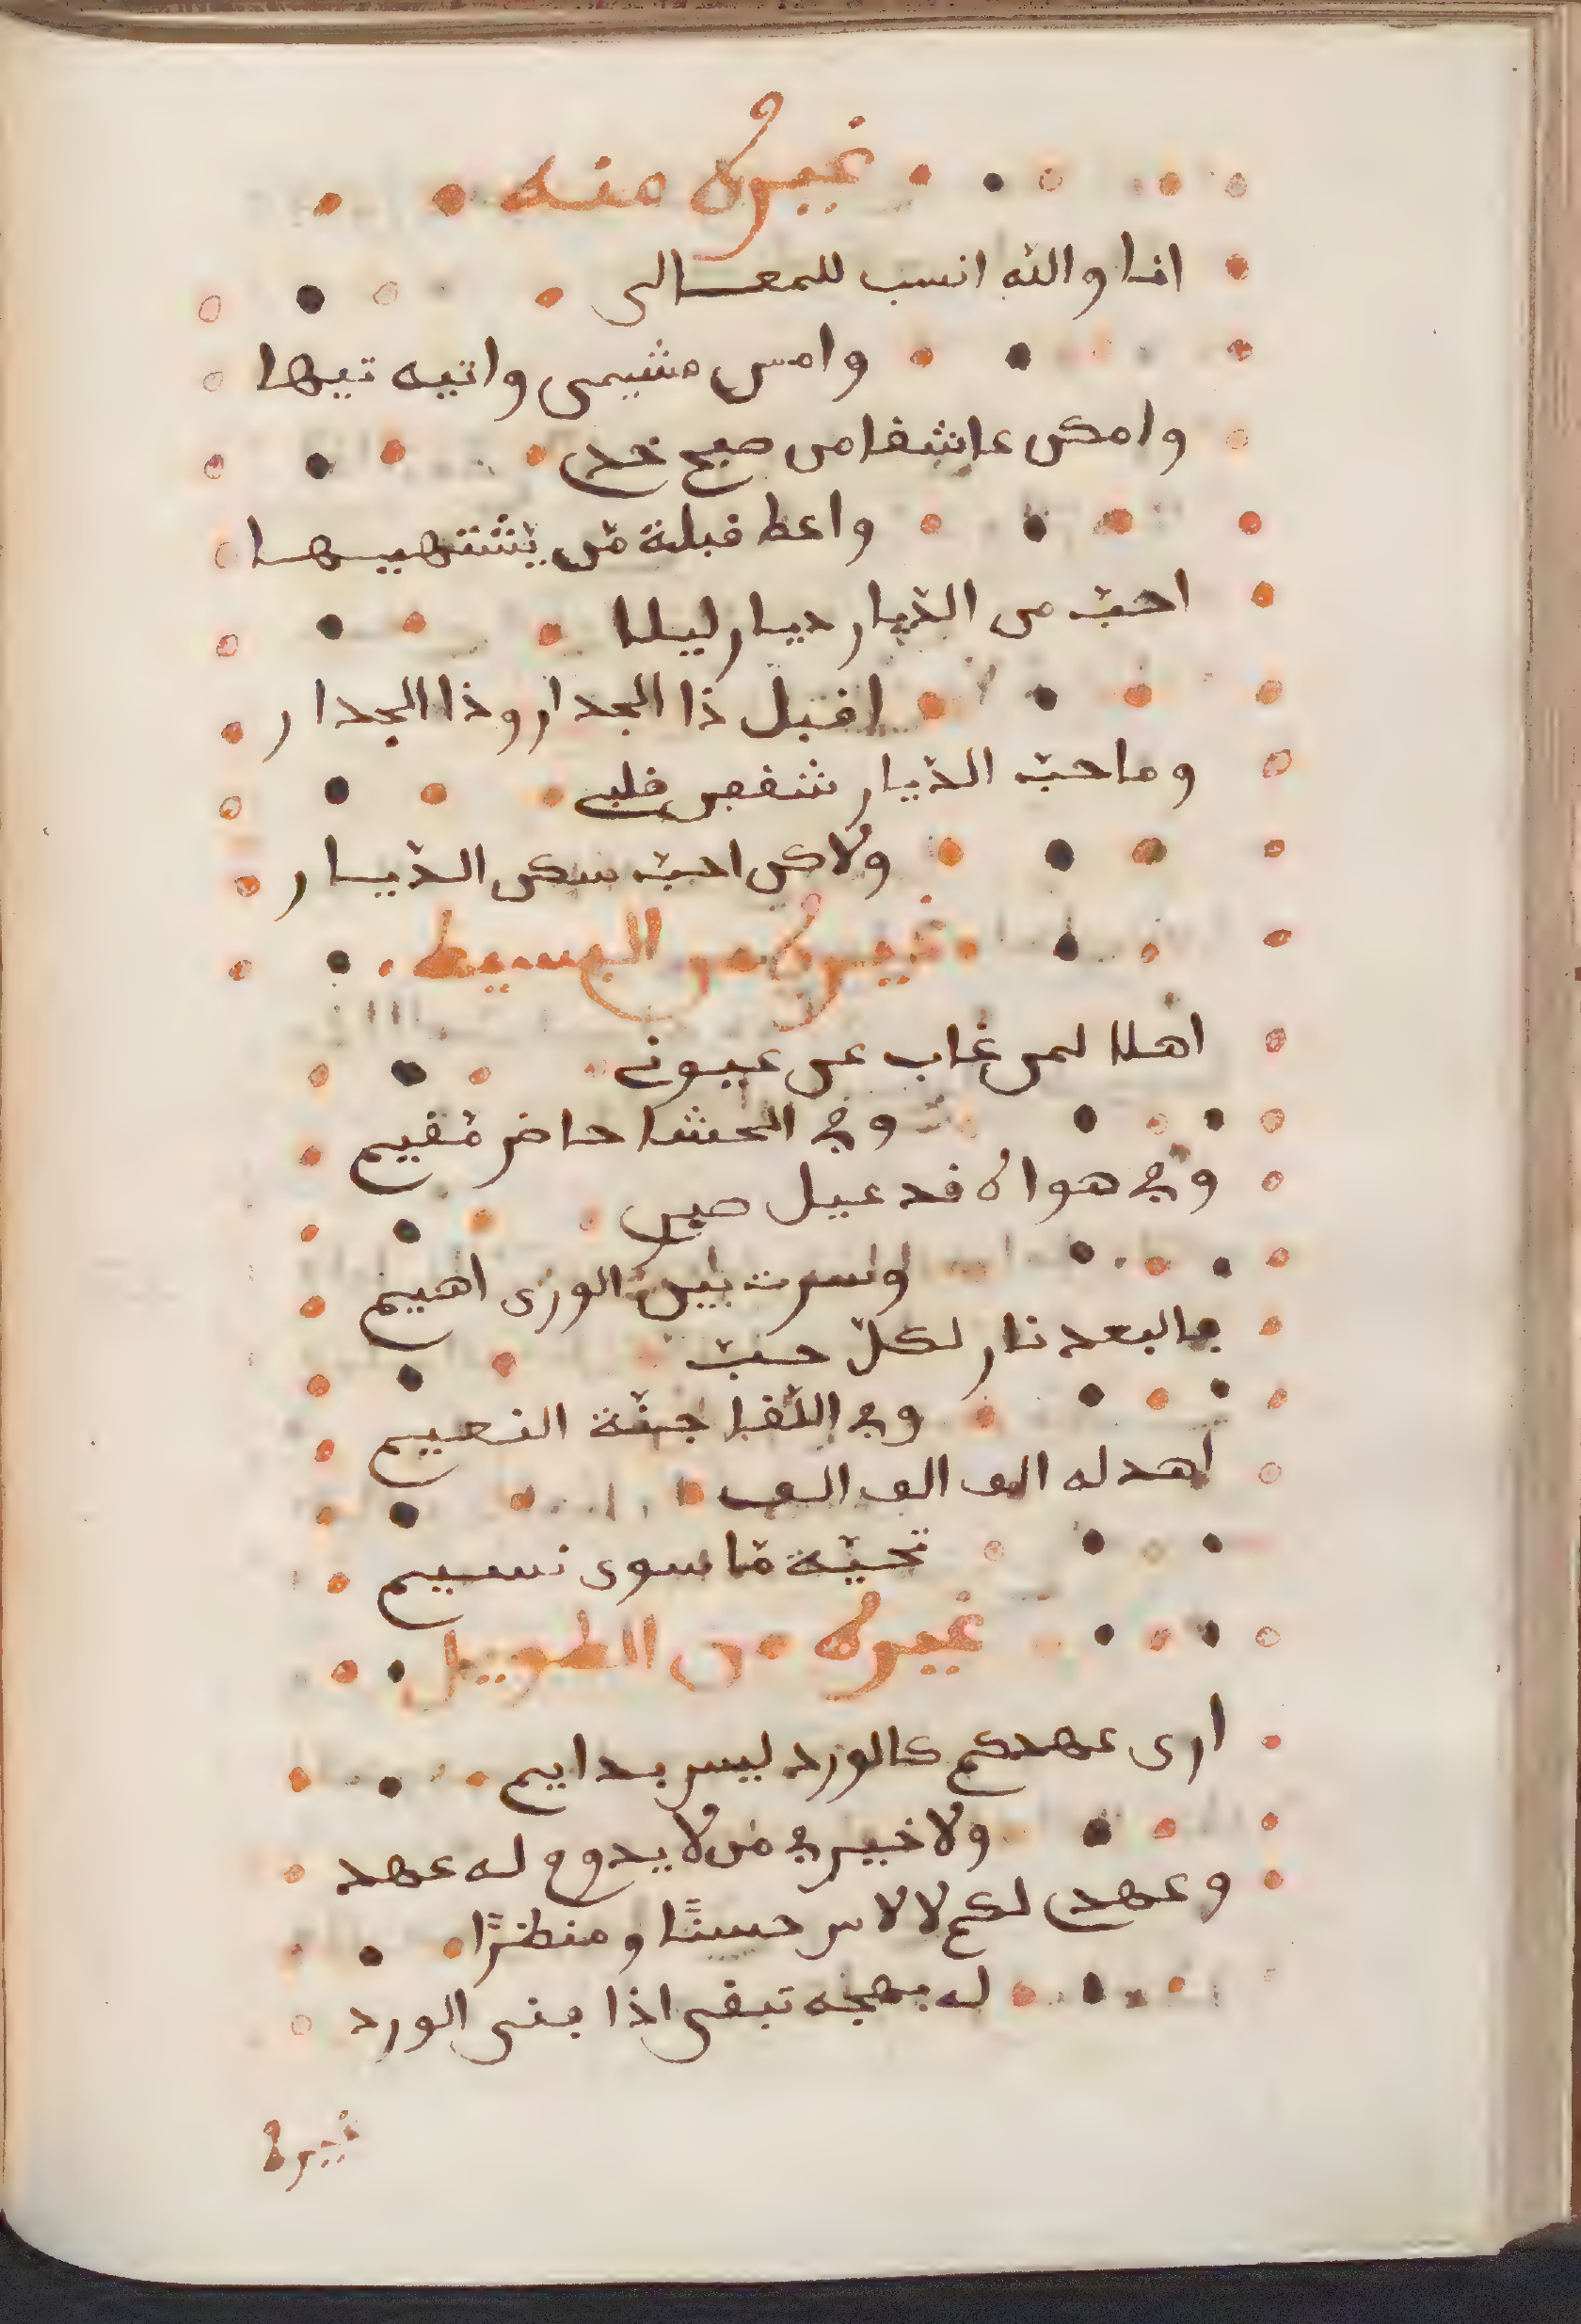 غيره منه
انا والله انسب للمعالى
وامس مشيمى واتيه تيها
وامكن عاشفا من صبح خدى
واعط قبلة من يشتهيها
احبّ من الدّيار ديار ليلا
اقبل ذا الجدار وذا الجدار
وما حبّ الدّيار شغفن قلبى
ولاكن احبّ سكن الدّيار
غيره من البسيط
اهلا لمن غاب عن عيونى
وفى الحشا حاضر مقيم
وفى هواه قد عيل صبرى
وسرت بين الورى اهيم
فالبعد نار لكلّ حبّ
وفى اللّقا جنّة النعيم
اهد له الف الف الف
تحيّة ما سوى نسيم
غيره من الطويل
ارى عهدكم كالورد ليس بدايم
ولا خير فى من لا يدوم له عهد
وعهدى لكم لالاس حسنًا ومنظرًا
له بهجه تبقى اذا فنى الورد
غيره